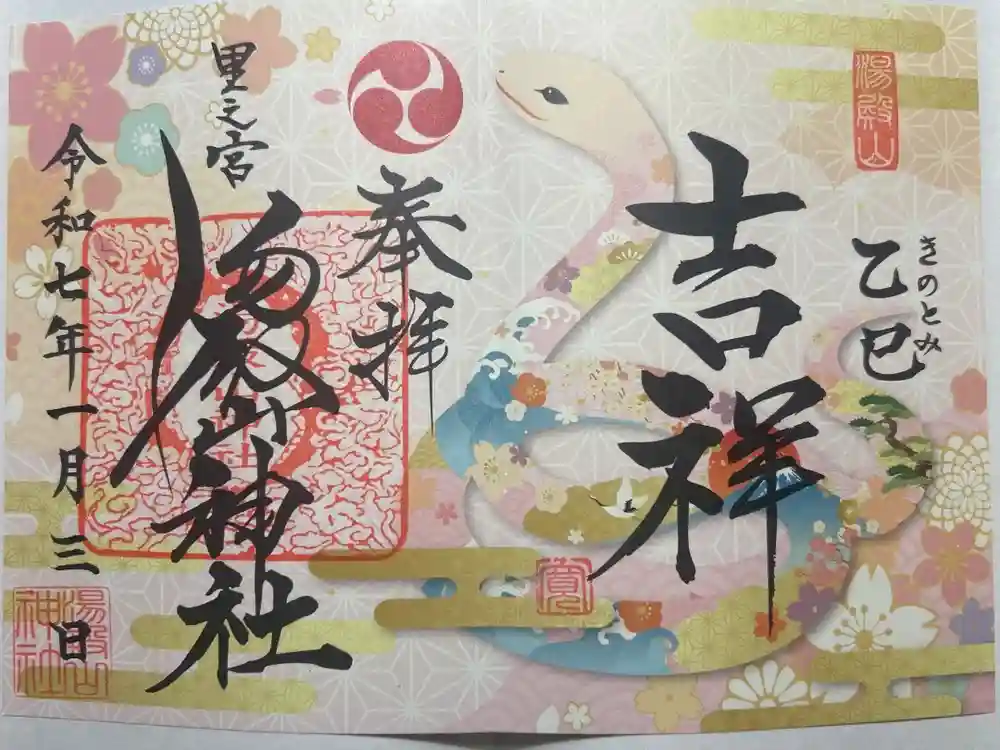 湯殿山
乙巳
きのとみ
吉祥
奉拝
里之宮
湯殿山神社
令和七年一月三日
湯殿山神社